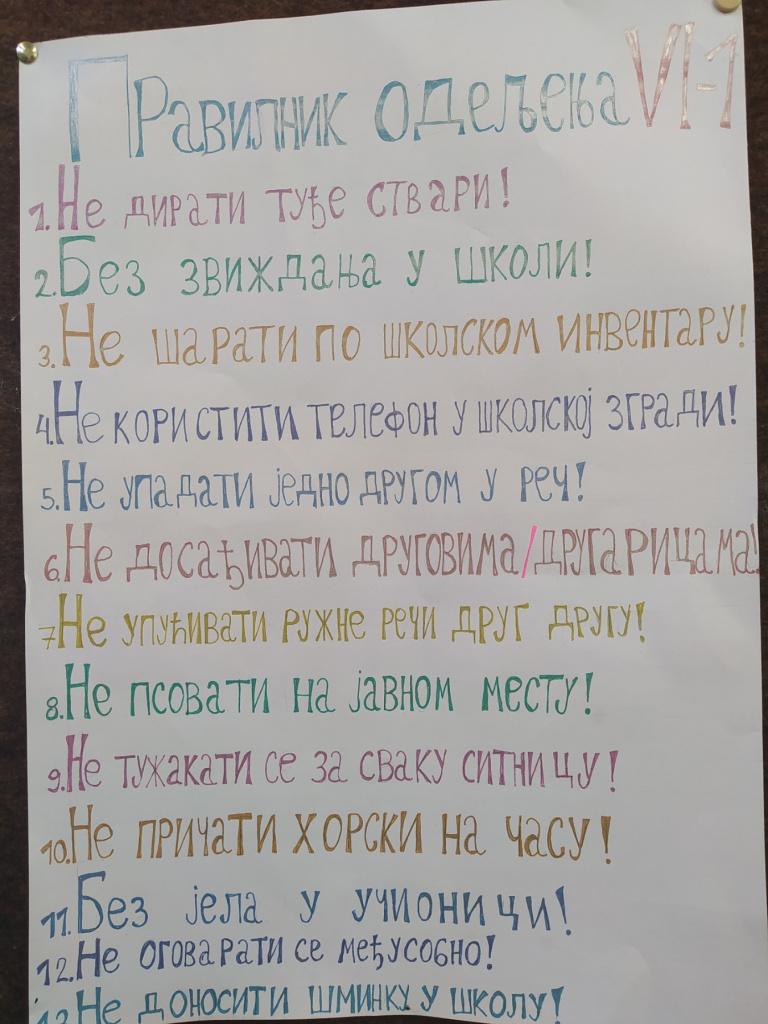 Правилник одељења VI-1
1. Не дирати туђе ствари!
2. Без звиждања у школи!
3. Не шарати по школском инвентару!
4. Не користити телефон у школској згради!
5. Не упадати једно другом у реч!
6. Не досађивати друговима/другарицама!
7. Не упућивати ружне речи друг другу!
8. Не псовати на јавном месту!
9. Не тужакати се за сваку ситницу!
10. Не причати хорски на часу!
11. Без јела у учионици!
12. Не оговарати се међусобно!
13. Не доносити шминку у школу!